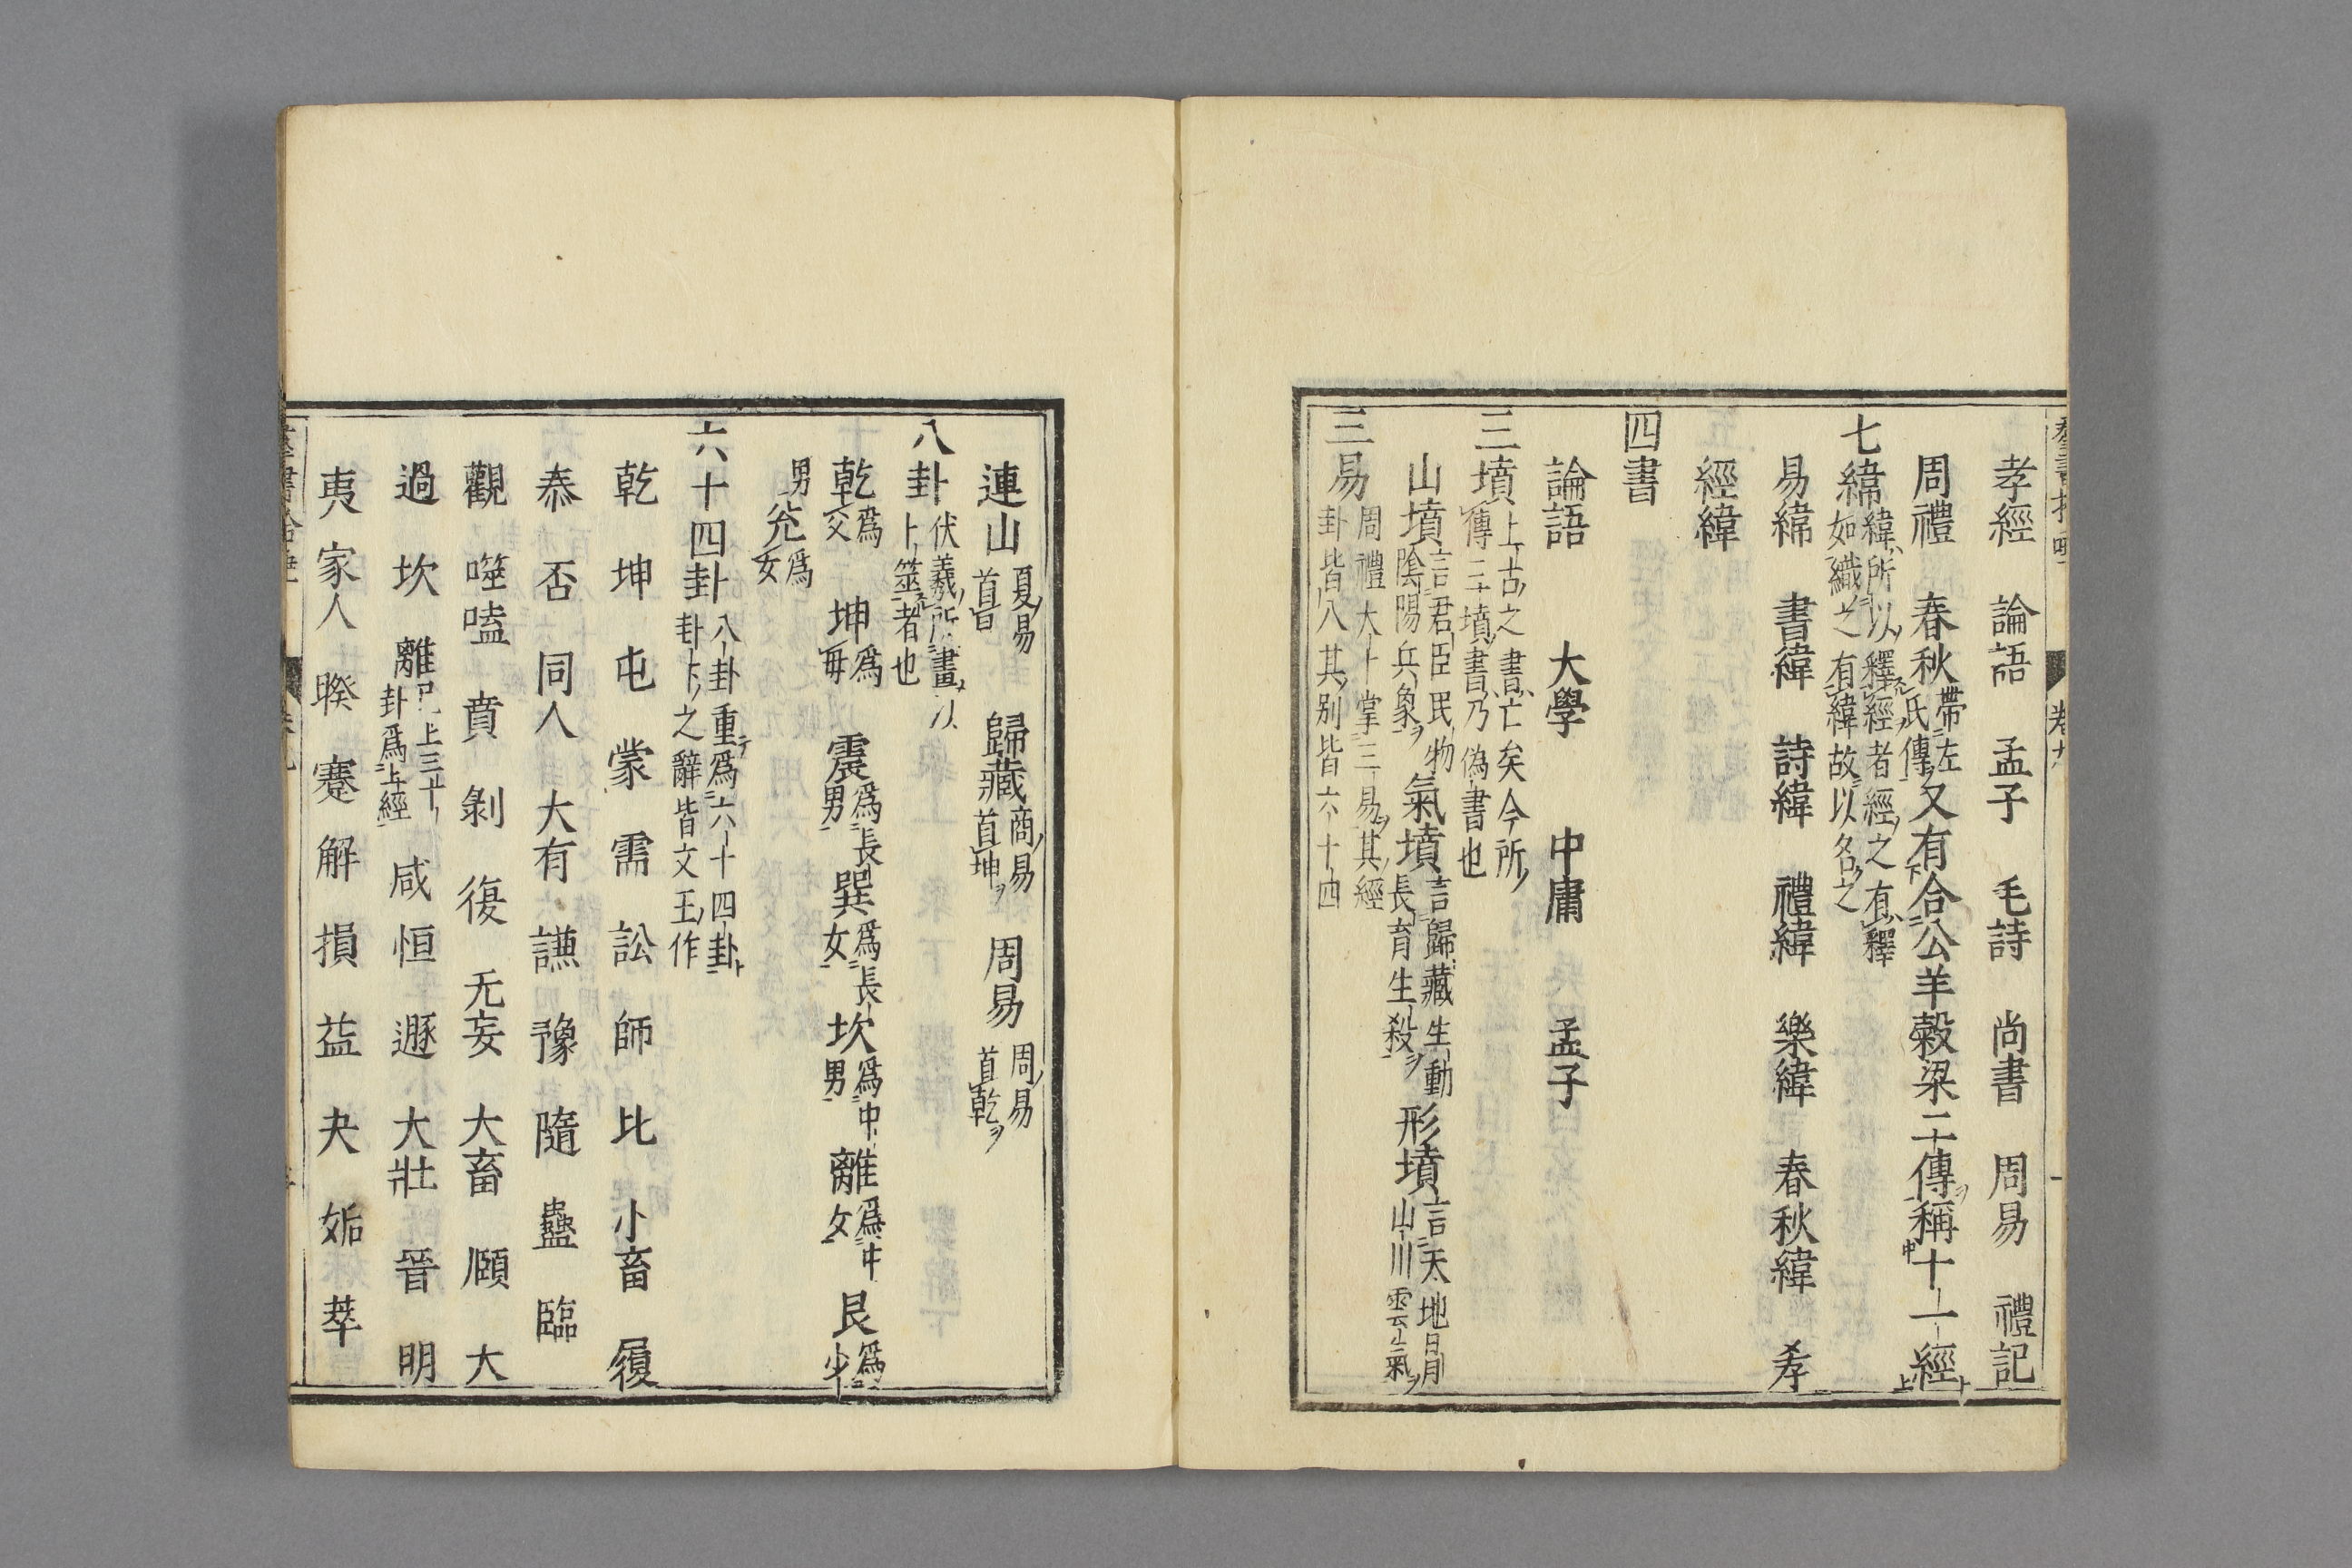 孝經 論語 孟子 毛詩 尚書 周易 禮記
周禮 春秋帶左氏傳又有合公羊穀梁二傳稱十一經
七緯緯所以釋經者經之有釋如織之有緯故以名之
易緯 書緯 詩緯 禮緯 樂緯 春秋緯 孝
經緯
四書
論語 大學 中庸 孟子
三墳上古之書亡矣今所傳三墳書乃偽書也
山墳言君臣民物陰陽兵象氣墳言歸藏生動長育生殺形墳言天地日月山川雲氣
三易周禮大卜掌三易其經卦皆八其别皆六十四
連山夏易首艮 歸藏商易首坤 周易周易首乾
八卦伏羲所畫以卜筮者也
乾爲父 坤爲母 震爲長男 巽爲長女 坎爲中男 離爲中女 艮爲少
男 兊爲女
六十四卦八卦重爲六十四卦卦下之辭皆文王作
乾 坤 屯 蒙 需 訟 師 比 小畜 履
泰 否 同人 大有 謙 豫 隨 蠱 臨
觀 噬嗑 賁 剝 復 无妄 大畜 頤 大
過 坎 離已上三十卦爲上經 咸 恒 遯 大壯 晉 明
夷 家人 睽 蹇 解 損 益 夬 姤 萃